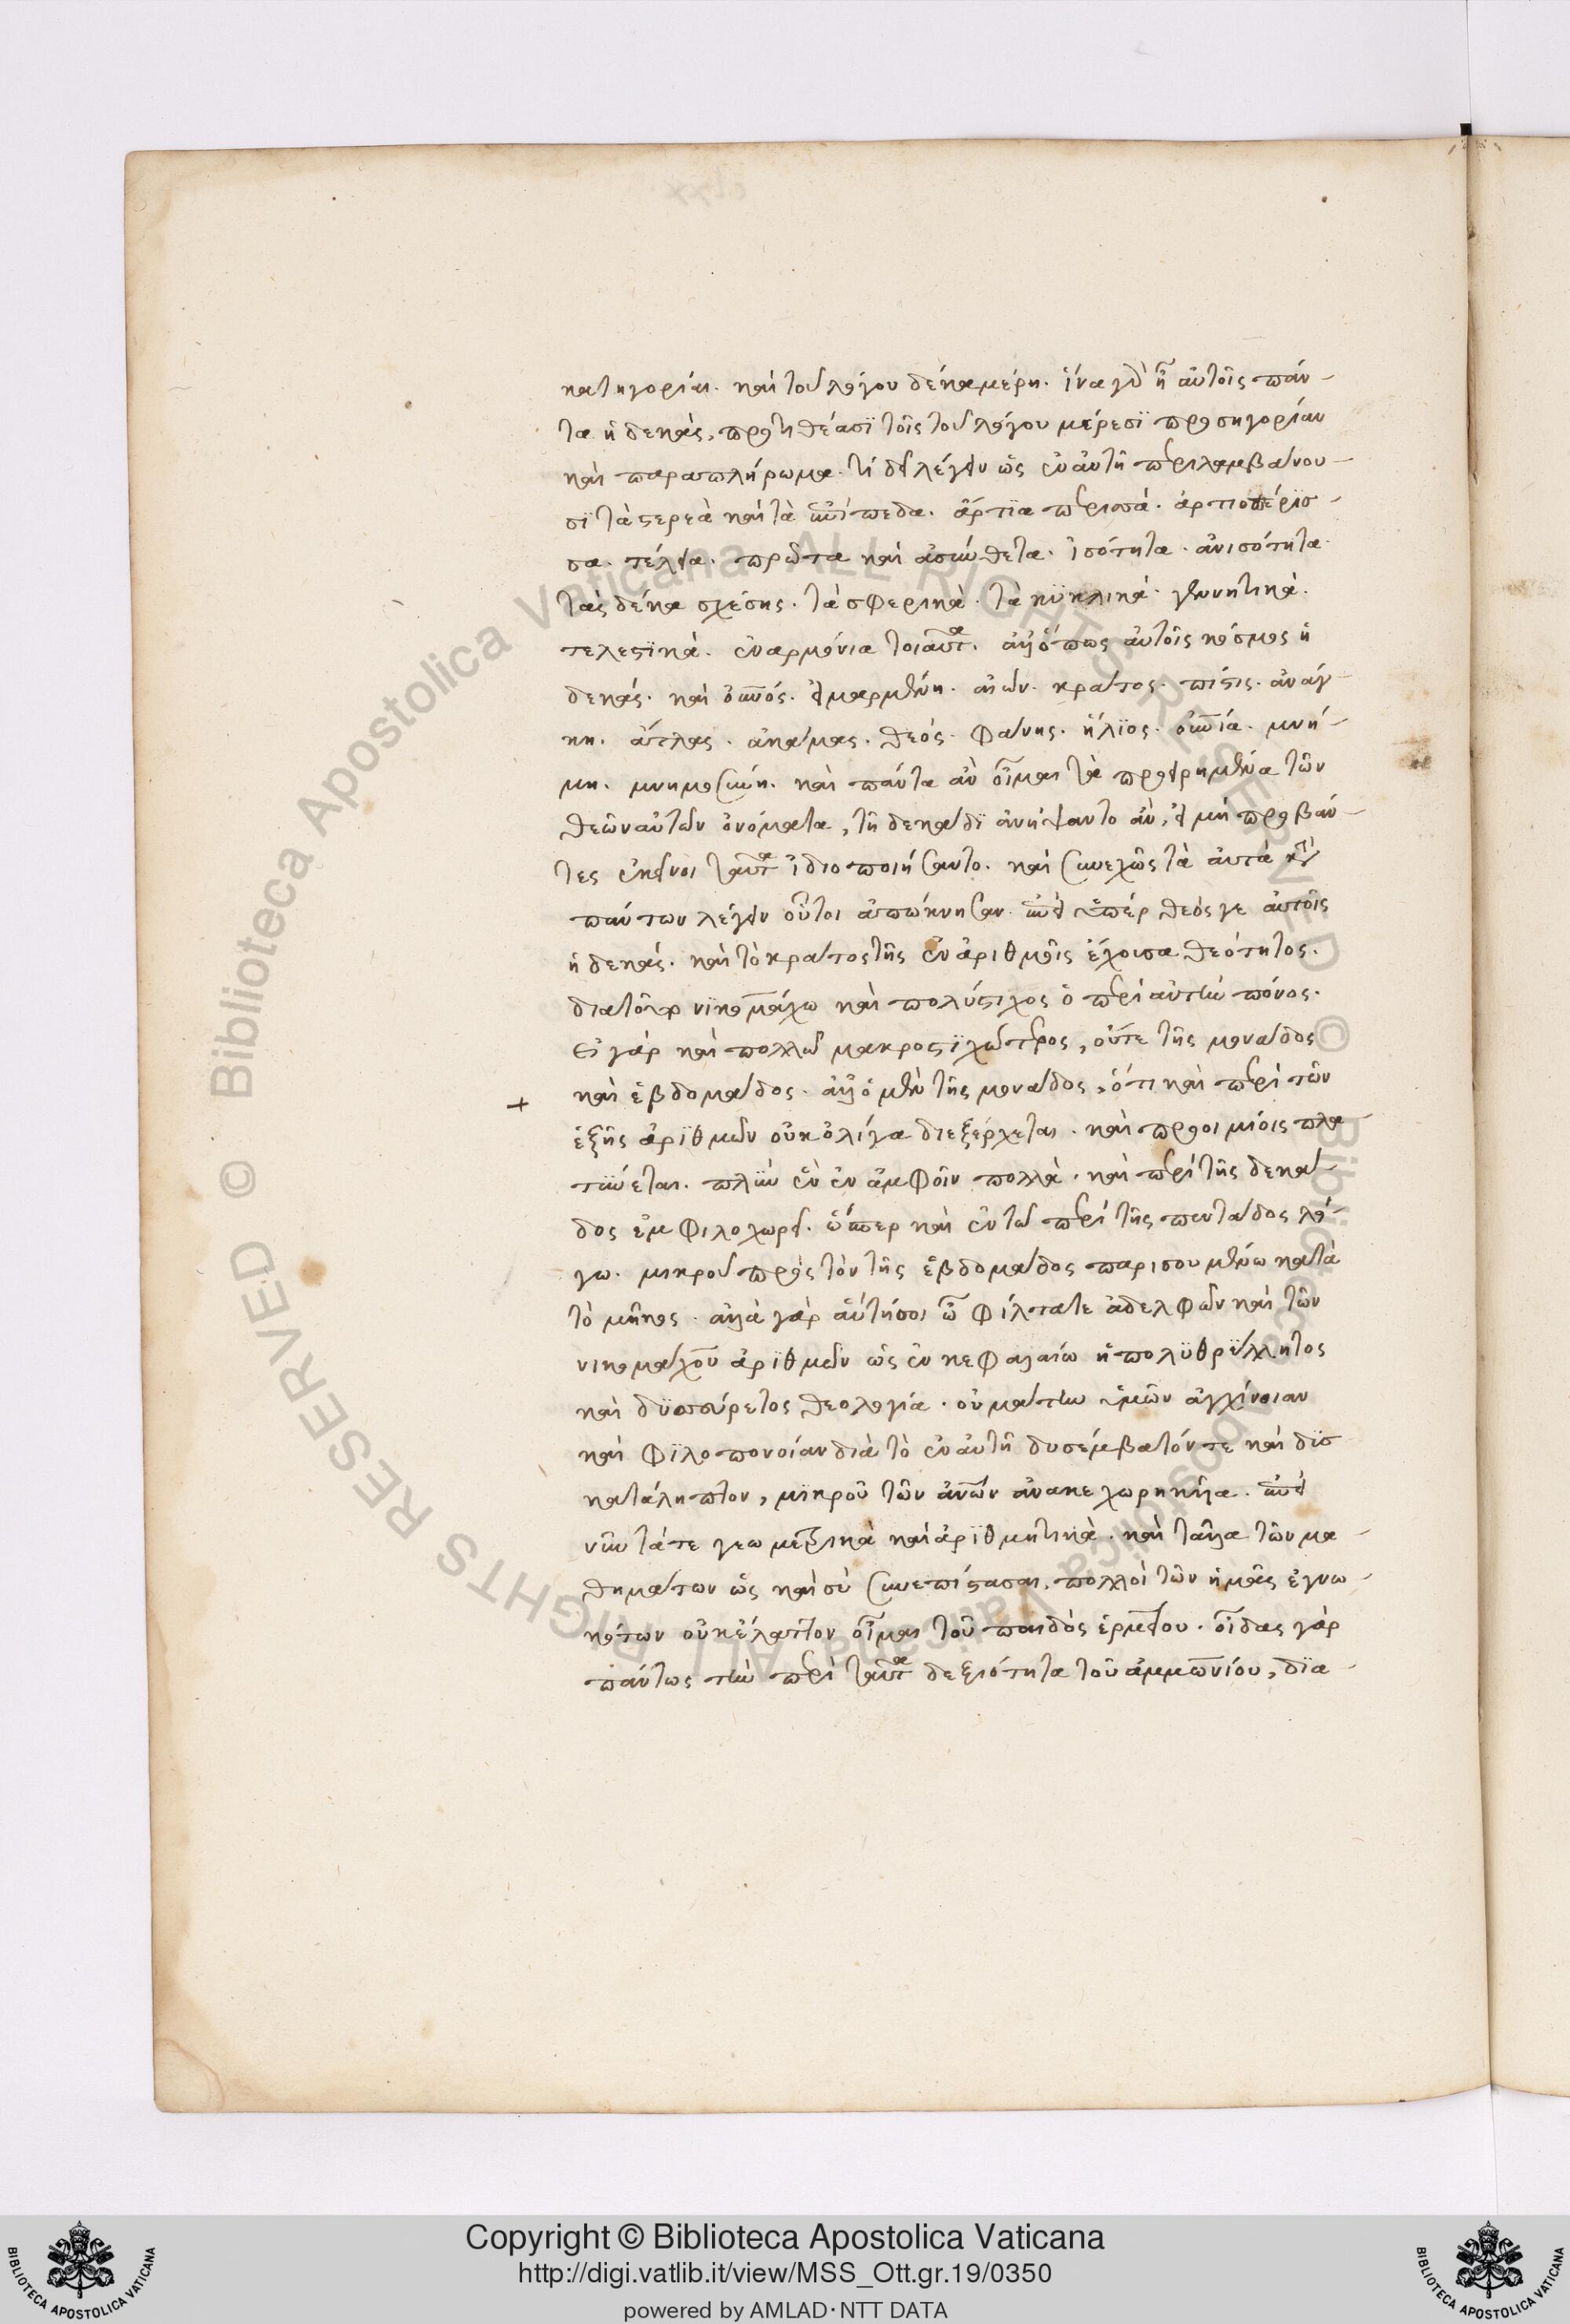 κατηγορίαι. καὶ τοῦ λόγου δέκα μέρη. ἵνα γὰρ ἦ αὐτοῖς πάν-
τα ἡ δεκὰς, προστιθέασϊ τοῖς τοῦ λόγου μέρεσϊ προσηγορίαν
καὶ παραπλήρωμα. τί δεῖ λέγειν ὡς ἐν αὐτῆ περιλαμβάνου-
σϊ τὰ στερεὰ καὶ τὰ ἐπίπεδα. ἄρτϊα περισσά. ἀρτιοπέρϊσ-
σα. τέλεια. πρῶτα καὶ ἀσύνθετα. ἰσότητα. ἀνισότητα.
τὰς δέκα σχέσης. τὰ σφερικὰ. τὰ κϋκλικά. γεννητικά.
τελεστϊκά. ἐναρμόνια τοιαῦτα. ἀλλ' ὅπως αὐτοῖς κόσμος ἡ
δεκάς. καὶ οὐρανός. εἱμαρμένη. αἰών. κράτος. πίστις. ἀνάγ-
κη. ἄτλας. ἀκάμας. θεός. φάνης. ἥλϊος. οὐσία. μνή-
μη. μνημοσύνη. καὶ πάντα ἂν οἶμαι τὰ προειρημένα τῶν
θεῶν αὐτῶν ὀνόματα, τῆ δεκάδϊ ἀνήψαντο ἂν, εἰ μὴ προβάν-
τες ἐκεῖνοι ταῦτα ἰδιοποιήσαντο. καὶ συνεχῶς τὰ αὐτὰ κατὰ
πάντων λέγειν οὗτοι ἀπώκνησαν. ἐπεὶ ὑπέρθεός γε αὐτοῖς
ἡ δεκάς. καὶ τὸ κράτος τῆς ἐν ἀριθμοῖς ἔχοισα θεότητος.
διατοῦτο νϊκομάχω καὶ πολύστιχος ὁ περὶ αὐτὴν πόνος.
εἰ γὰρ καὶ πολλῶ μακροστϊχώτερος, οὔτε τῆς μονάδος
καὶ ἑβδομάδος. ἀλλ' ὁ μὲν τῆς μονάδος, ὅτι καὶ περὶ τῶν
ἑξῆς ἀρϊθμῶν οὐκ ὀλίγα διεξέρχεται. καὶ προοιμίοις πλα
τύνεται. πλὴν ἐν ἀμφοῖν πολλὰ. καὶ περὶ τῆς δεκά-
δος ἐμφιλοχωρεῖ. ὥσπερ καὶ ἐν τῶ περὶ τῆς πεντάδος λό-
γω. μικροῦ πρὸς τὸν τῆς ἑβδομάδος παρισουμένω κατὰ
τὸ μῆκος. ἀλλὰ γὰρ αὕτη σοι ὦ φίλτατε ἀδελφῶν καὶ τῶν
νικομάχου ἀρϊθμῶν ὡς ἐν κεφαλαίω ἡ πολϋθρϋλλητος
καὶ δϋσεύρετος θεολογία. οὐ μάτην ὑμῶν ἀγχίνοιαν
καὶ φϊλοπονοίαν διὰ τὸ ἐν αὐτῆ δυσέμβατόν τε καὶ δϋσ
κατάληπτον, μϊκροῦ τῶν ἀνθρώπων ἀνακεχωρηκῆα. ἐπεὶ
νῦν τά τε γεωμετρικὰ καὶ ἀρϊθμητικὰ. καὶ τἄλλα τῶν μα-
θημάτων ὡς καὶ σὺ συνεπίστασαι, πολλοὶ τῶν ἡμᾶς ἐγνω-
κότων οὐκ ἔλαττον οἶμαι τοῦ παιδὸς ἑρμείου. οἶδας γὰρ
πάντως τὴν περὶ ταῦτα δεξιότητα τοῦ ἀμμωνίου, δϊα-
Copyright © Biblioteca Apostolica Vaticana
http://digi.vatlib.it/view/MSS_Ott.gr.19/0350
powered by AMLAD·NTT DATA